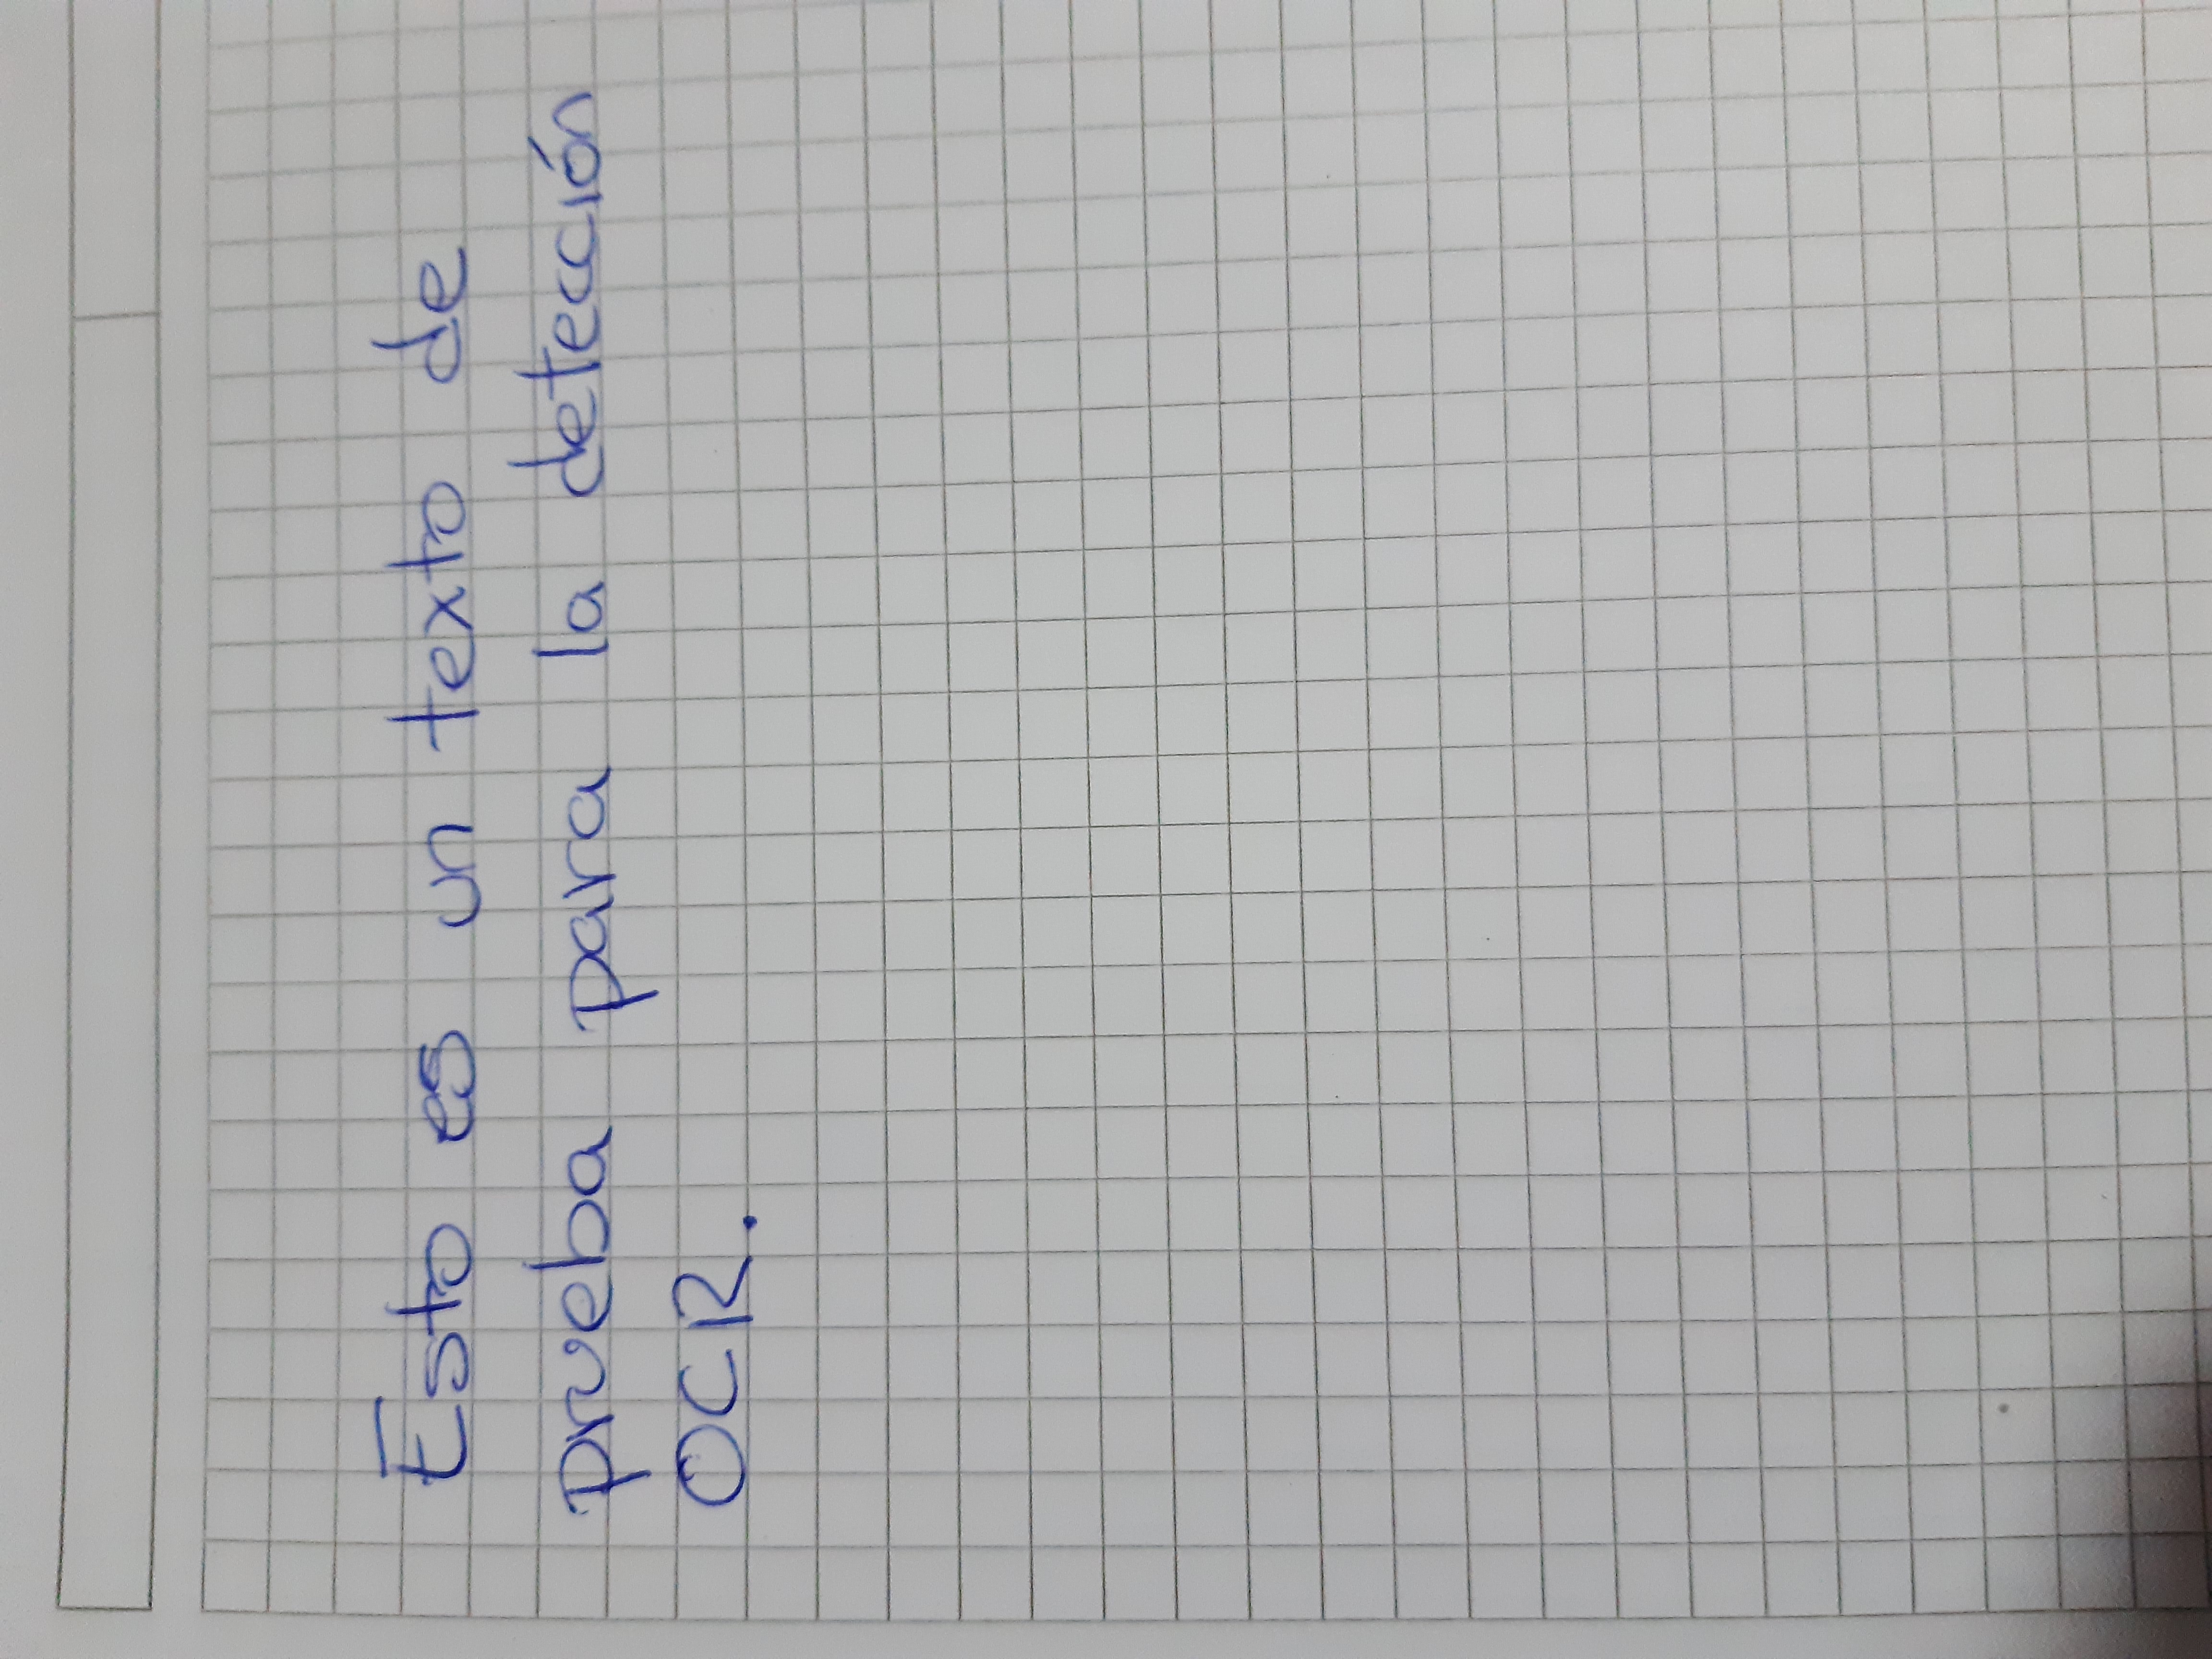 Esto es un texto de
prueba para la detección
OCR.